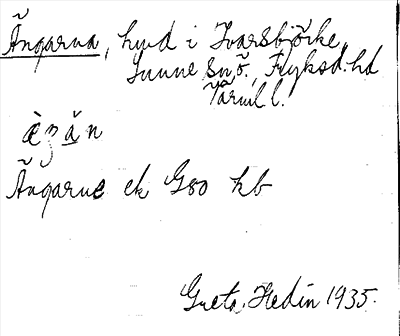 Ängarna, hmd i Ivarsbjörke,
Sunne sn ö., Fryksd. hd
Värml l.
Ängarne ek G80 kb
Greta Hedin 1935.